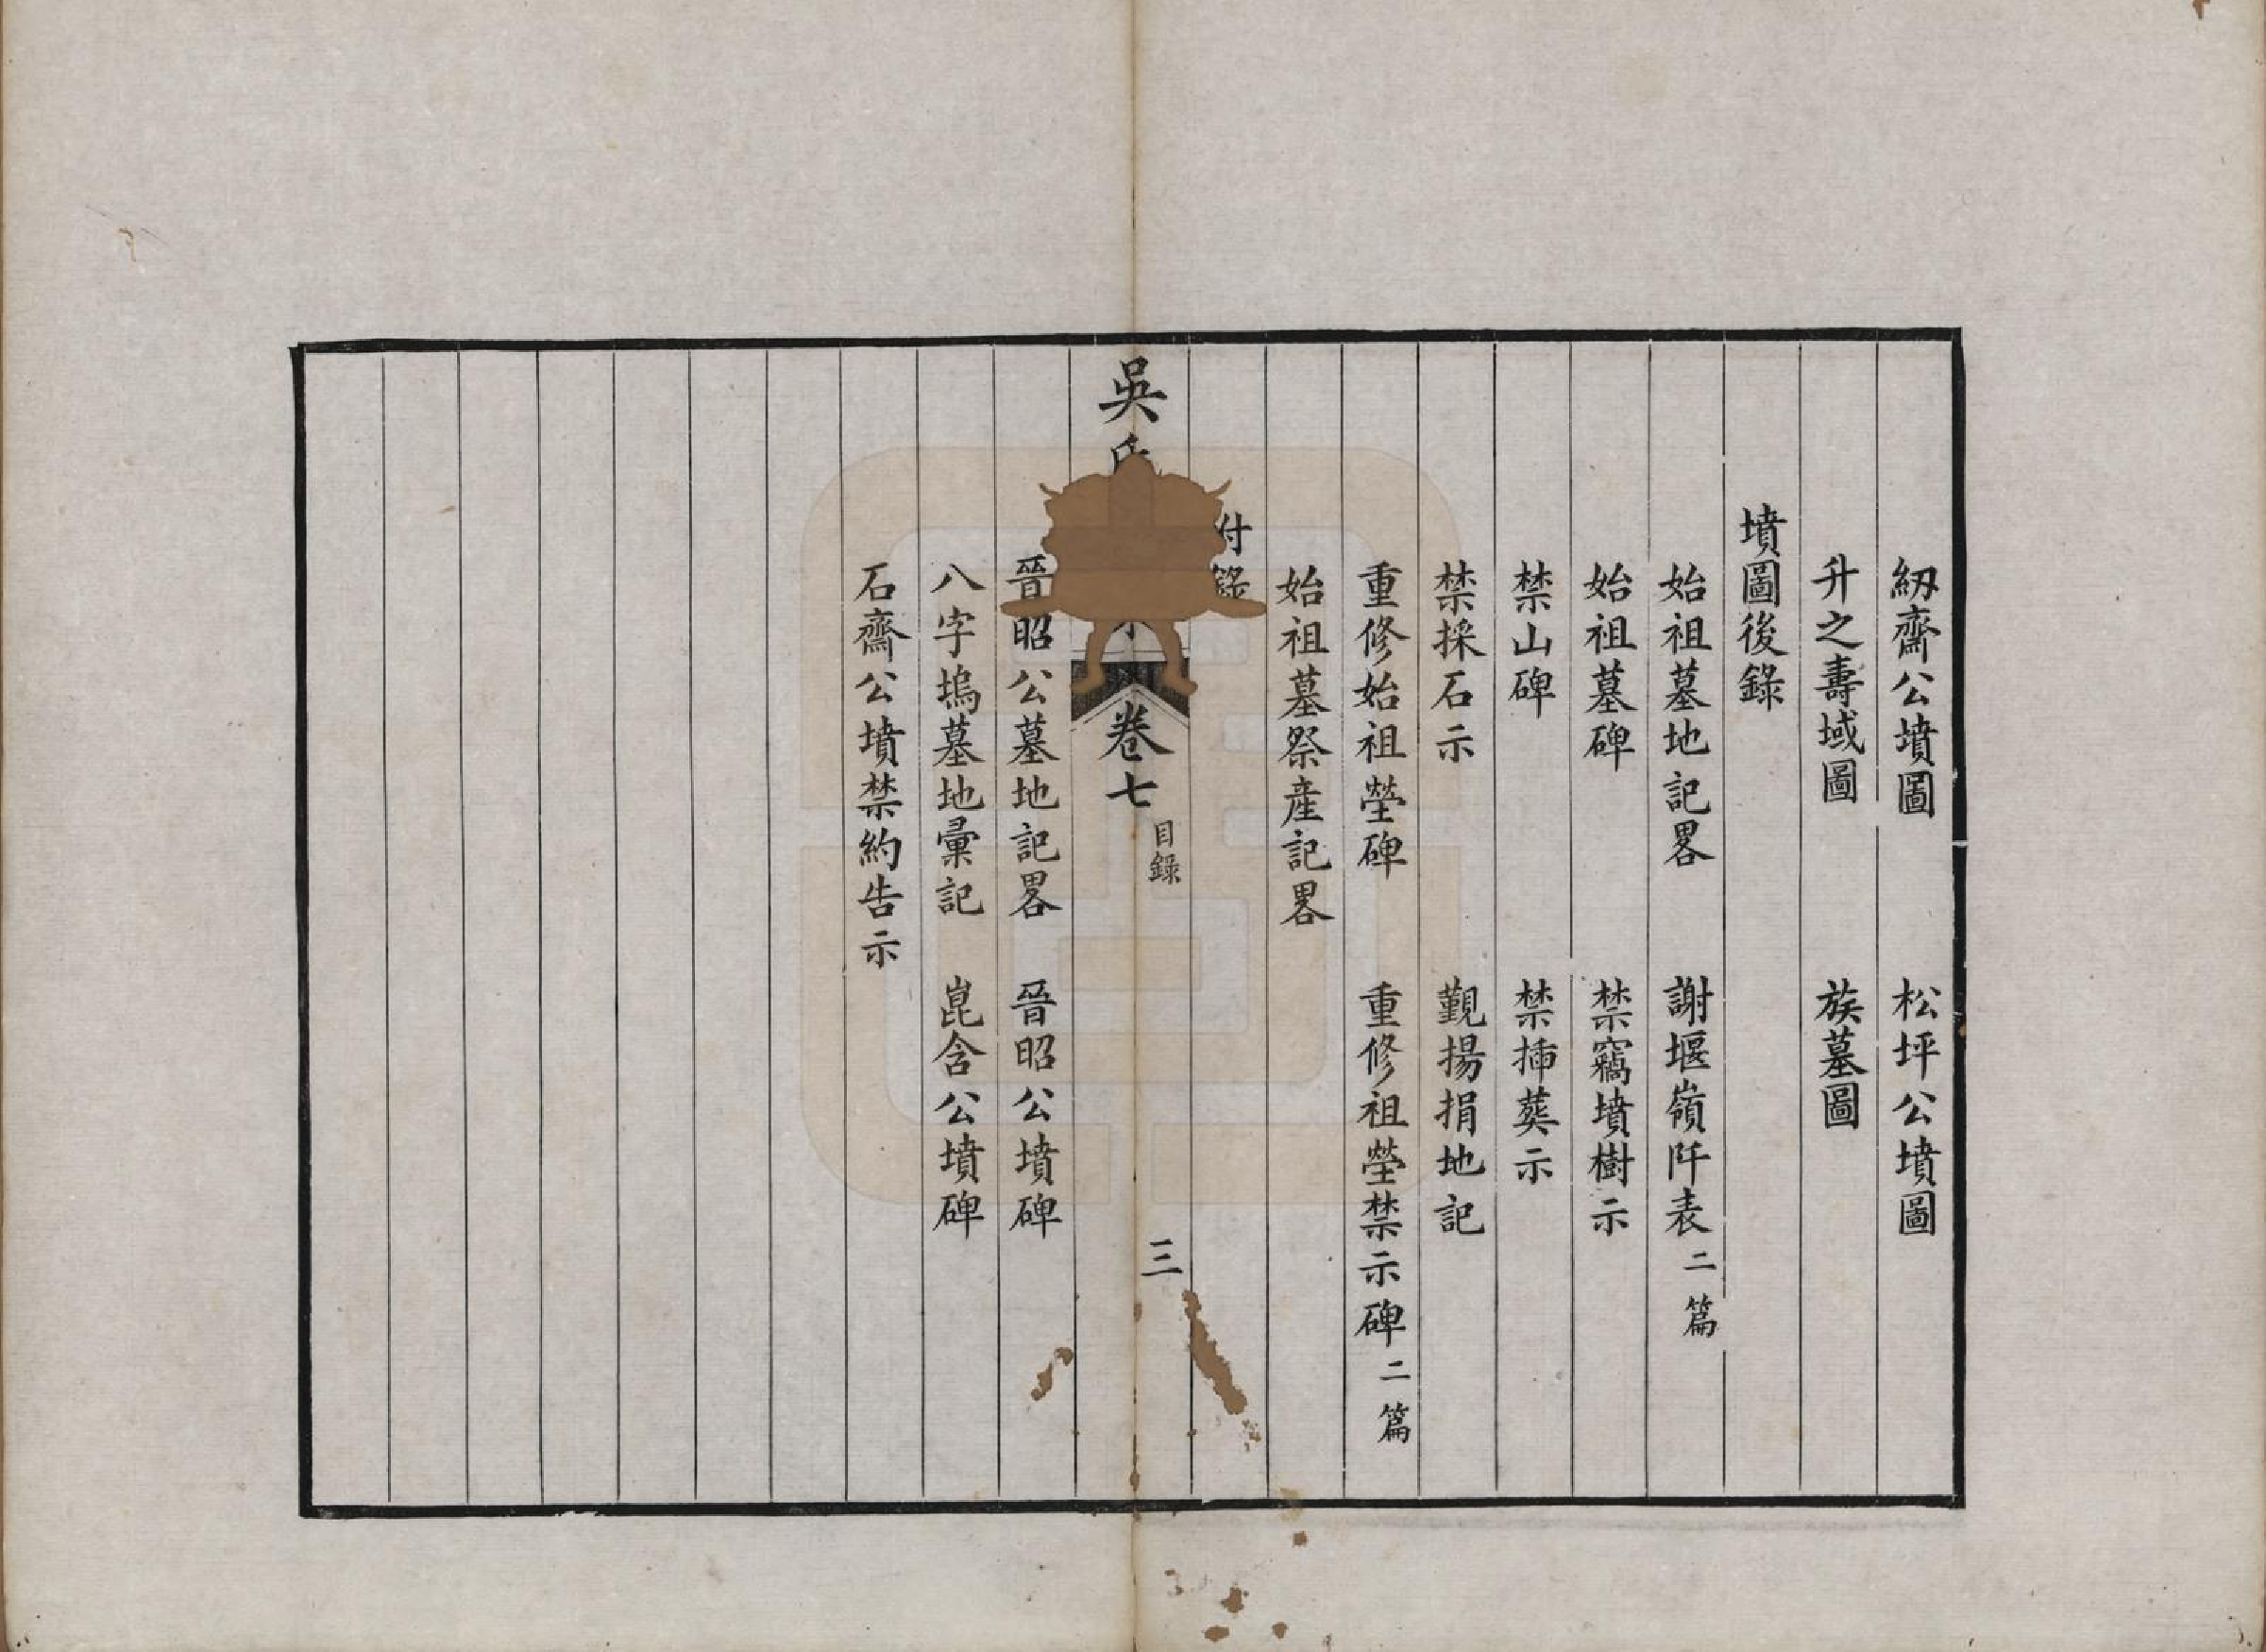 紉齋公墳圖　松坪公墳圖
升之壽域圖　族墓圖
墳圖後錄
始祖墓地記畧　謝堰嶺阡表二篇
始祖墓碑　禁竊墳樹示
禁山碑　禁揷葬示
禁採石示　觀揚捐地記
重修始祖塋碑　重修祖塋禁示碑二篇
始祖墓祭産記畧
付錄
吳氏　卷七　目錄　三
晉昭公墓地記畧　晉昭公墳碑
八字塢墓地彙記　崑含公墳碑
石齋公墳禁約告示